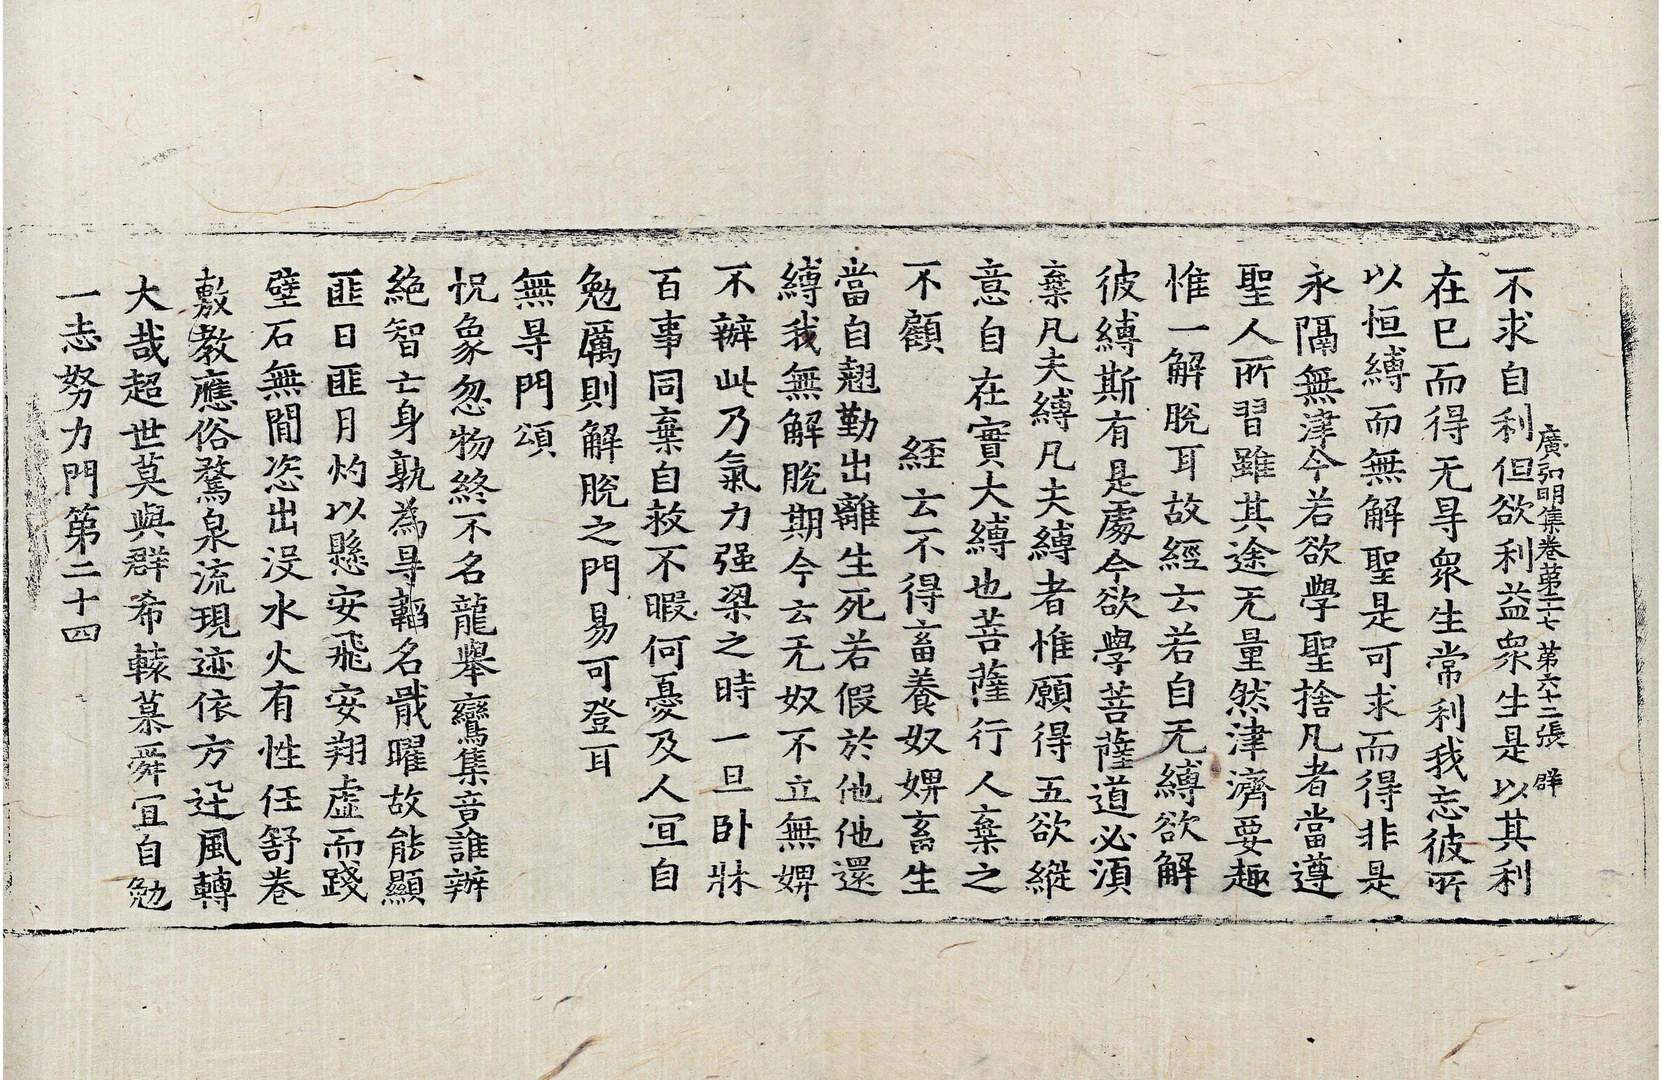 廣弘明集卷第二十七 第六十二張 群
不求自利但欲利益衆生是以其利
在已而得无㝵衆生常利我忘彼所
以恒縛而無解聖是可求而得非是
永隔無津今若欲學聖捨凡者當遵
聖人所習雖其途无量然津濟要趣
惟一解脫耳故經云若自无縛欲解
彼縛斯有是處今欲學菩薩道必湏
棄凡夫縛凡夫縛者惟願得五欲縱
意自在實大縛也菩薩行人棄之
不顧 經云不得畜養奴婢畜生
當自翹勤出離生死若假於他他還
縛我無解脫期今云无奴不立無婢
不辦此乃氣力强梁之時一旦卧牀
百事同棄自救不暇何憂及人冝自
勉厲則解脫之門易可登耳
無㝵門頌
怳象忽物終不名龍舉鸞集音誰辦
絶智亡身孰為㝵韜名戢曜故能顯
匪日匪月灼以懸安飛安翔虛而踐
壁石無閒恣出沒水火有性任舒卷
敷教應俗騖泉流現迹依方迅風轉
大哉超世莫與群希轅慕舜冝自勉
一志努力門第二十四